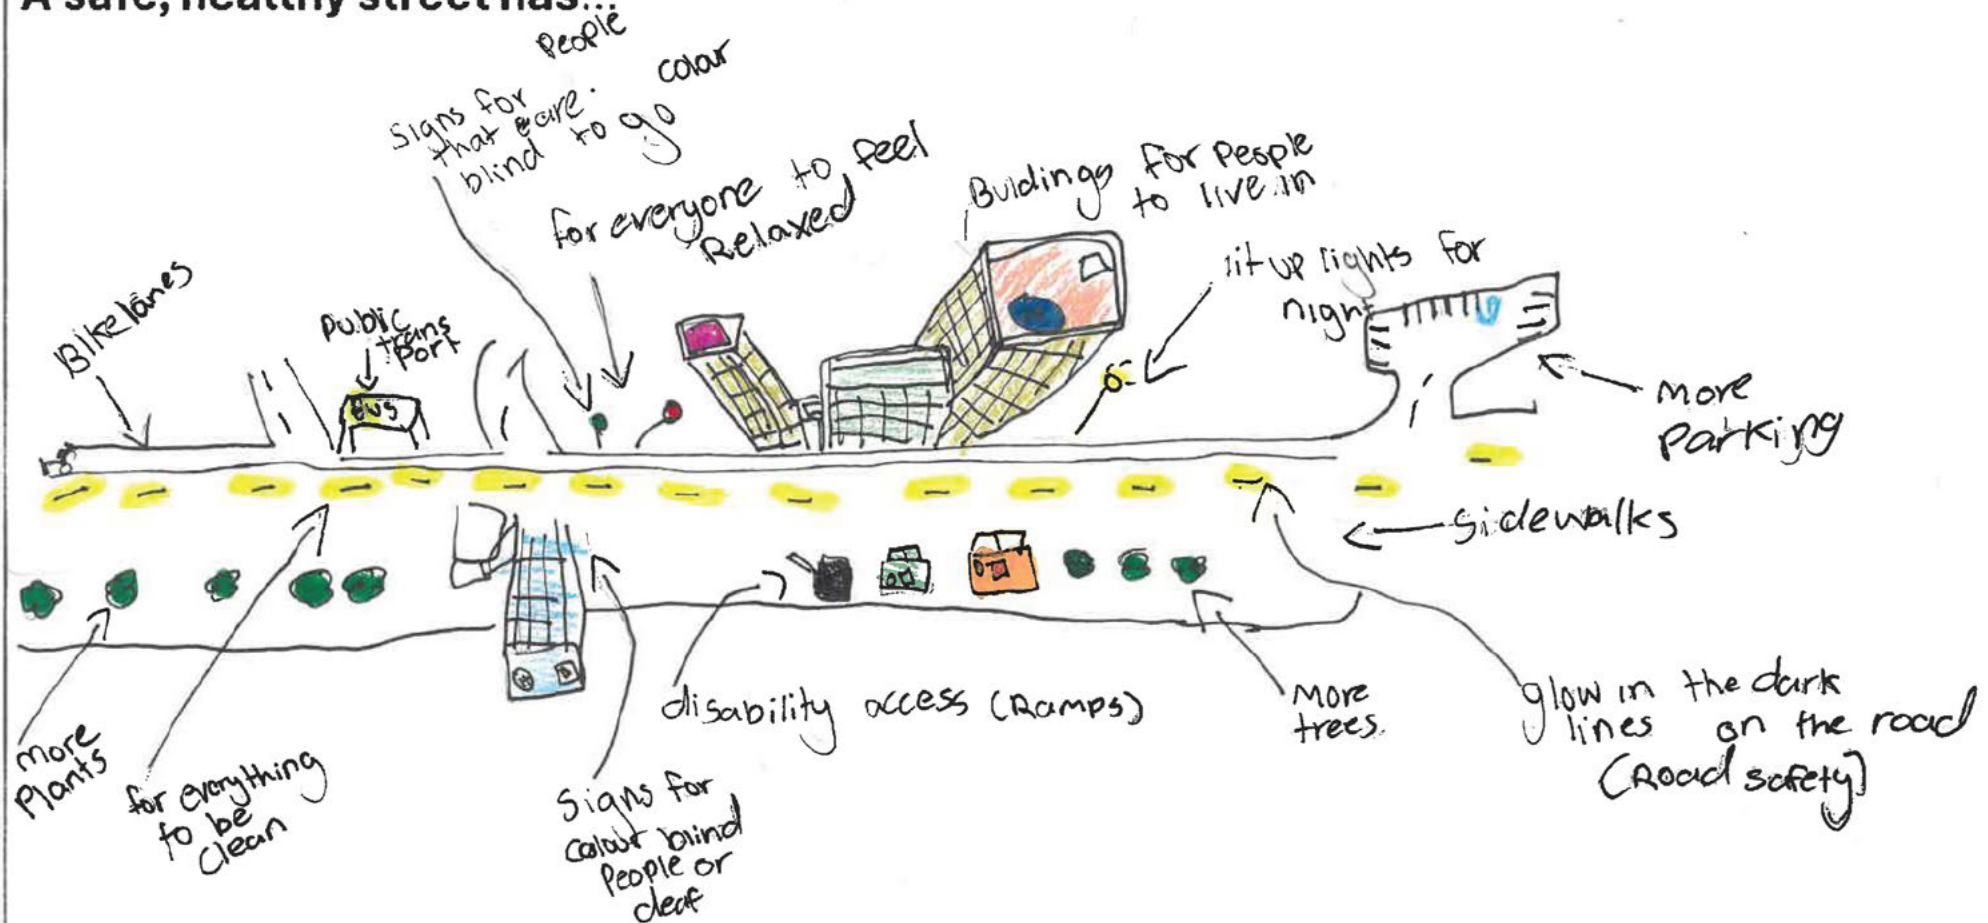 A safe, healthy street has...
People
Signs for
that are
colar
blind to go
for everyone to feel
Relaxed
Buldings for People
to live in
lit up lights for
night
Bike lanes
Public
trans
port
BUS
more
parking
Sidewalks
more
Plants
for everything
to be
clean
Signs for
colour blind
People or
deaf
disability access (Ramps)
More
trees.
glow in the dark
lines on the road
(Road safety)